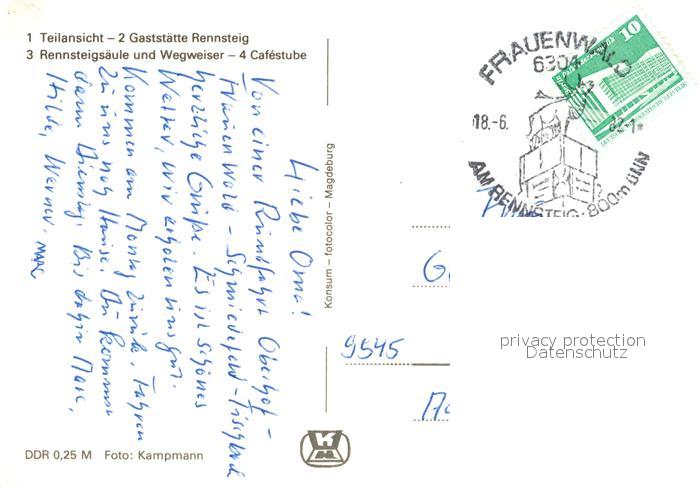 1 Teilansicht – 2 Gaststätte Rennsteig
3 Rennsteigsäule und Wegweiser – 4 Caféstube
Liebe Oma!
Von einer Rundfahrt Oberhof –
Frauenwald – Schmiedefeld –
herzliche Grüße. Es ist schönes
Wetter, wir erholen uns gut.
Kommen am Montag zurück. Fahren
zu uns nach Hause. Du kommst
dann Dienstag. Bis dahin
Hilde, Werner.
Konsum – fotocolor – Magdeburg
DDR 0,25 M Foto: Kampmann
FRAUENWALD
6304
18.-6.
AM RENNSTEIG · 800m ÜNN
10
DEUTSCHE DEMOKRATISCHE REPUBLIK
G
9545
privacy protection
Datenschutz